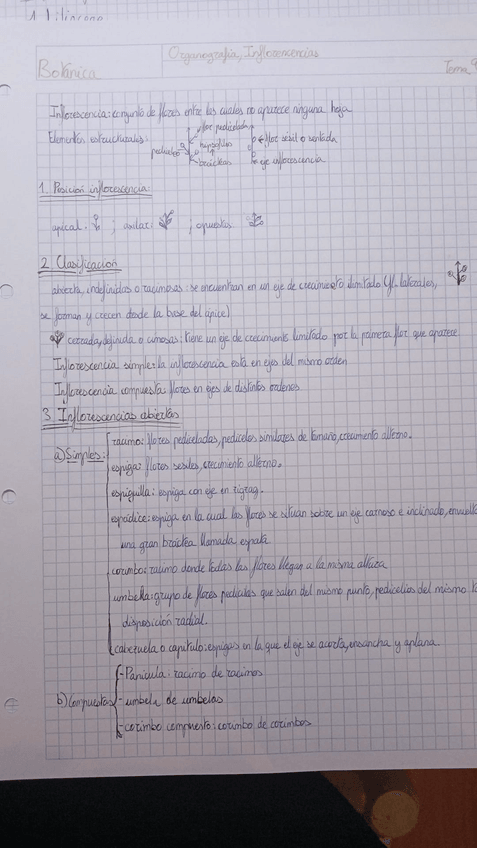 Organografía, Inflorescencias
Botánica
Tema 9
Inflorescencia: conjunto de flores entre las cuales no aparece ninguna hoja
Elementos estructurales:
flor pedicelada
pedicelo
hipsofilos
brácteas
flor sésil o sentada
eje inflorescencia
1. Posición inflorescencia
apical: ; axilar: ; opuestas
2. Clasificación
abierta, indefinidas o racimosas: se encuentran en un eje de crecimiento ilimitado (fl. laterales,
se forman y crecen desde la base del ápice)
cerrada, definida o cimosas: tiene un eje de crecimiento limitado por la primera flor que aparece
Inflorescencia simple: la inflorescencia está en ejes del mismo orden
Inflorescencia compuesta: flores en ejes de distintos ordenes
3. Inflorescencias abiertas
a) Simples:
racimo: flores pediceladas, pedicelos similares de tamaño, crecimiento alterno.
espiga: flores sesiles, crecimiento alterno.
espiguilla: espiga con eje en zigzag.
espádice: espiga en la cual las flores se situan sobre un eje carnoso e inclinado,
una gran bráctea llamada espata
corimbo: racimo donde todas las flores llegan a la misma altura
umbella: grupo de flores que salen del mismo punto, pedicelos del mismo
disposición radial.
cabezuela o capitulo: espigas en la que el eje se acorta, ensancha y aplana
b) Compuestas
- Panícula: racimo de racimos
- umbela de umbelas
- corimbo compuesto: corimbo de corimbos